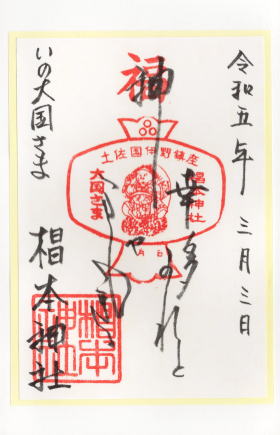 令和五年 三月三日
福
土佐国伊野鎮座
椙本神社
大国さま
幸多かれと
いの大国さま
椙本神社
椙本神社